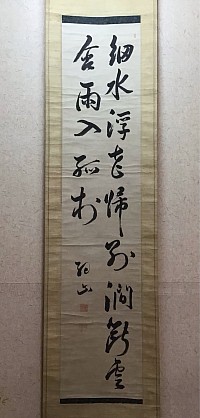 細水浮花歸別澗斷雲
含雨入孤村